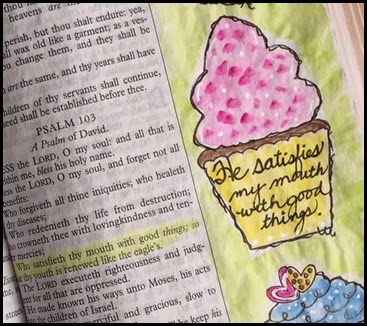 heavens are the
perish, but thou shalt endure: yea,
all wax old like a garment; as a ves-
you change them, and they shall be
are the same, and thy years shall have
children of thy servants shall continue,
seed shall be established before thee.
PSALM 103
A Psalm of David.
the LORD, O my soul: and all that is
within me, bless his holy name.
the LORD, O my soul, and forget not all
his benefits:
Who forgiveth all thine iniquities; who healeth
thy diseases;
Who redeemeth thy life from destruction;
who crowneth thee with lovingkindness and ten-
mercies;
Who satisfieth thy mouth with good things; so
thy youth is renewed like the eagle's.
The LORD executeth righteousness and judg-
ment for all that are oppressed.
He made known his ways unto Moses, his acts
the children of Israel.
merciful and gracious, slow to
will he keep his
He satisfies
my mouth
with good
things.